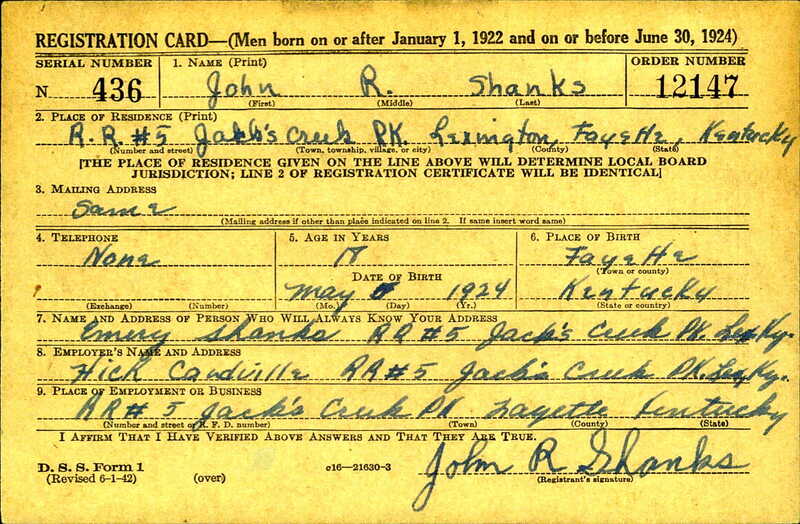 REGISTRATION CARD—(Men born on or after January 1, 1922 and on or before June 30, 1924)
SERIAL NUMBER 1. NAME (Print) ORDER NUMBER
N 436 John R. Shanks 12147
(First) (Middle) (Last)
2. PLACE OF RESIDENCE (Print)
R.R. #5 Jack's Creek PK. Lexington, Fayette, Kentucky
(Number and street) (Town, township, village, or city) (County) (State)
[THE PLACE OF RESIDENCE GIVEN ON THE LINE ABOVE WILL DETERMINE LOCAL BOARD
JURISDICTION; LINE 2 OF REGISTRATION CERTIFICATE WILL BE IDENTICAL]
3. MAILING ADDRESS
Same
(Mailing address if other than place indicated on line 2. If same insert word same)
4. TELEPHONE 5. AGE IN YEARS 6. PLACE OF BIRTH
None 18 Fayette
(Town or county)
DATE OF BIRTH
May 1924 Kentucky
(Exchange) (Number) (Mo.) (Day) (Yr.) (State or country)
7. NAME AND ADDRESS OF PERSON WHO WILL ALWAYS KNOW YOUR ADDRESS
Emery Shanks RR#5 Jack's Creek PK. Lex Ky.
8. EMPLOYER'S NAME AND ADDRESS
Hick RR#5 Jack's Creek PK. Lex Ky.
9. PLACE OF EMPLOYMENT OR BUSINESS
RR#5 Jack's Creek PK Fayette Kentucky
(Number and street or R. F. D. number) (Town) (County) (State)
I AFFIRM THAT I HAVE VERIFIED ABOVE ANSWERS AND THAT THEY ARE TRUE.
John R Shanks
D. S. S. Form 1 c16—21630-3 (Registrant's signature)
(Revised 6-1-42) (over)